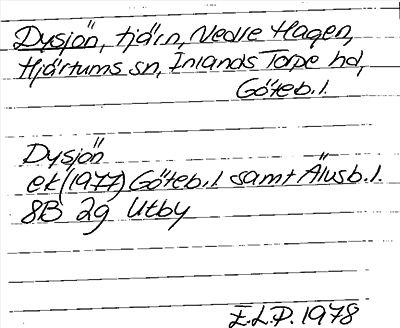 Dysjön, tjärn, Nedre Hagen,
Hjärtums sn, Inlands Torpe hd,
Göteb.l.
Dysjön
ek (1977) Göteb.l. samt Älvsb.l.
8B 2g Utby
E.L.P. 1978